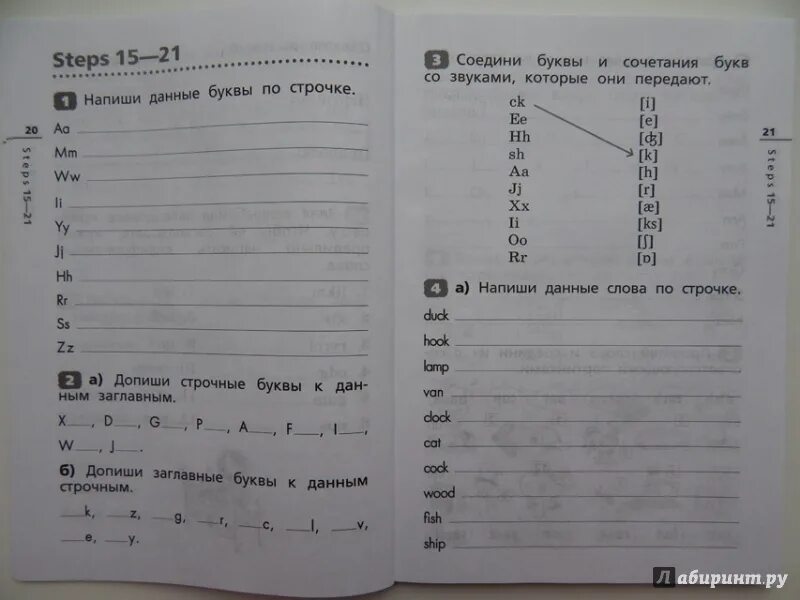 Steps 15—21
1 Напиши данные буквы по строчке.
Aa
Mm
Ww
Ii
Yy
Jj
Hh
Rr
Ss
Zz
2 а) Допиши строчные буквы к дан-
ным заглавным.
X___, D___, G___, P___, A___, F___, I___,
W___, J___.
б) Допиши заглавные буквы к данным
строчным.
___k, ___z, ___g, ___r, ___c, ___l, ___v,
___e, ___y.
20
Steps 15—21
3 Соедини буквы и сочетания букв
со звуками, которые они передают.
ck [i]
Ee [e]
Hh [ʤ]
sh [k]
Aa [h]
Jj [r]
Xx [æ]
Ii [ks]
Oo [ʃ]
Rr [ɒ]
4 а) Напиши данные слова по строчке.
duck
hook
lamp
van
clock
cat
cock
wood
fish
ship
21
Steps 15—21
Лабиринт.ру